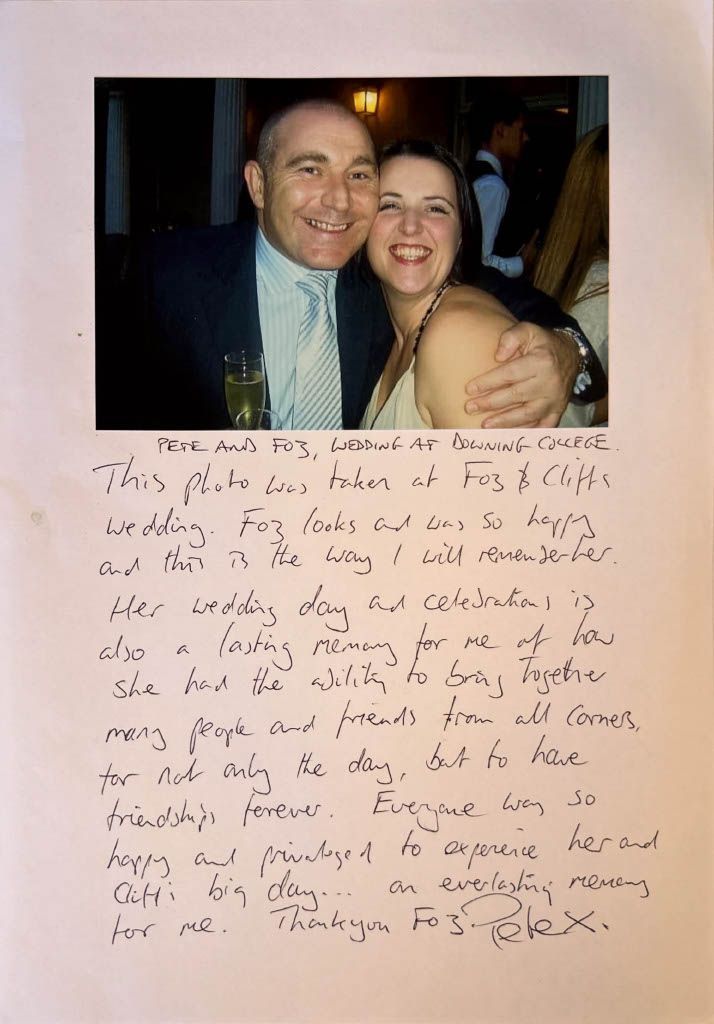 PETE AND FOZ, WEDDING AT DOWNING COLLEGE.
This photo was taken at Foz & Cliffs
wedding. Foz looks and was so happy
and this is the way I will remember her.
Her wedding day and celebrations is
also a lasting memory for me of how
she had the ability to bring together
many people and friends from all corners,
for not only the day, but to have
friendships forever. Everyone was so
happy and privaleged to experience her and
Cliff's big day... an everlasting memory
for me. Thankyou Foz Pete X.